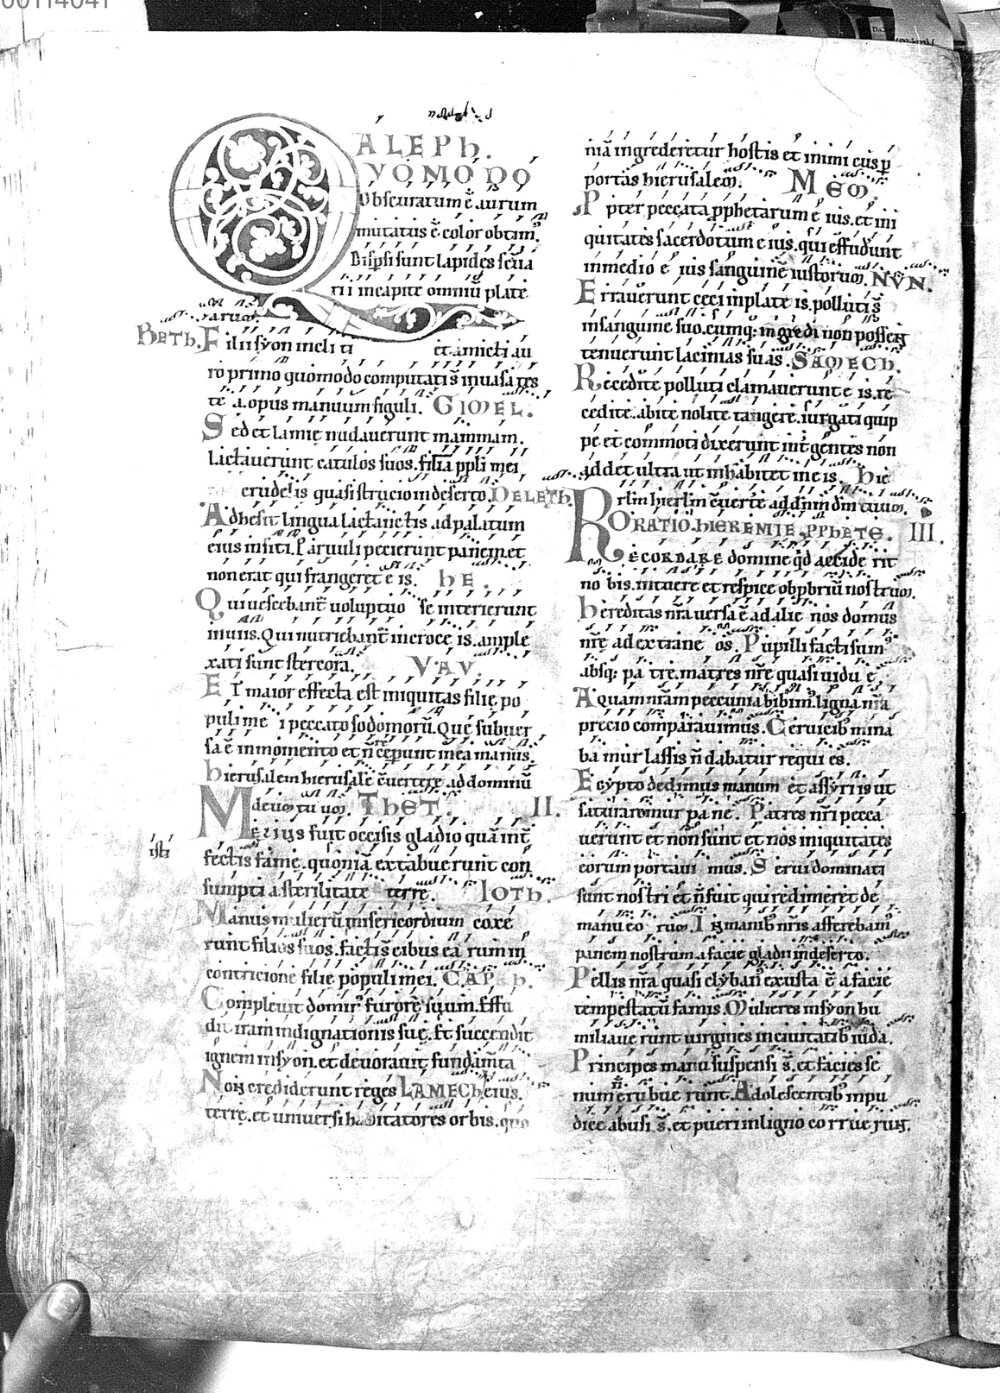 00114041
ALEPh.
QVOMODO
obscuratum ē aurum
mutatus ē color obtim᷒.
Dispsi sunt lapides scūa
rii incapite omniū plate
arum.
BETh. Filii syon incliti et amicti au
ro primo quomodo computati s̄ inuasa tes
te a. opus manuum figuli. GIMEL.
Sed et lamię nudauerunt mammam.
lactauerunt catulos suos. filia ppli mei
crudelis quasi strucio indeserto. DELETh.
Adhesit lingua lactantis adpalatum
eius insiti. Paruuli pecierunt panem. et
non erat qui frangeret e is. hE.
Qui uescebant᷒ voluptuo se interierunt
inuiis. Qui nutriebant᷒ incroce is. ample
xati sunt stercora. VAV.
ET maior effecta est iniquitas filię po
puli me i peccato sodomorū. Que subuer
sa ē inmomento et n̄ ceperunt inea manus.
hierusalem hierusalē c̄uertere ad dominū
deum tu um. ThET. II.
Melius fuit occisis gladio quā int̄
fectis fame. quoniā extabuerunt con
sumpti a sterilitate terrę. IOTh.
isti
Manus mulierū misericordium coxe
runt filios suos. facti s̄ cibus ea rum in
contricione filię populi mei. CAPH.
Compleuit domin᷒ furorē suum. Effu
dit iram indignationis suę. Et succendit
ignem insyon. et deuorauit fundam̄ta
Non crediderunt reges LAMECh eius.
terrę. et uniuersi habitatores orbis. qm̄
niā ingrederetur hostis et inimi cus p̱
portas hierusalem. MEM
Ppter peccata p̱phetarum e ius. et ini
quitates sacerdotum e ius. qui effudunt
inmedio e ius sanguinē iustorum. NVN.
Errauerunt ceci inplate is. polluti s̄
insanguine suo. cumq; ingredi non possent
tenuerunt lacinias suas. SAMECh.
Recedite polluti clamauerunt e is. re
cedite. abite nolite tangere. iurgati quip
pe et commoti dixerunt int̄ gentes non
addet ultra ut inhabitet ine is. hie
rl̄m hierl̄m c̄uerte ad dn̄m dm̄ tuum.
ORATIO. hIEREMIE. P̱PhETE. III.
RECORDARE domine qd̄ accide rit
no bis. intuere et respice obp̱briū nostrum.
hereditas nr̄a uersa ē ad alie nos domus
nrę̄ ad extrane os. Pupilli facti sum᷒
absq; pa tre. matres nrę̄ quasi uidu ę.
Aquam nr̄am peccunia bibim᷒. ligna nr̄a
precio comparauimus. Ceruicib᷒ mina
ba mur lassis n̄ dabatur requi es.
Egypto dedimus manum et assyri is ut
saturaremur pa ne. Patres nr̄i pecca
uerunt et non sunt et nos iniquitates
eorum portaui mus. Serui dominati
sunt nostri et n̄ fuit qui redimeret de
manu eo rum. Inanimab᷒ nr̄is afferebam᷒
panem nostrum a facie gladii indeserto.
Pellis nr̄a quasi clyban᷒ exusta ē a facie
tempestatū famis. Mulieres insyon hu
miliaue runt uirgines inciuitatib᷒ iuda.
Principes manu suspensi s̄. et facies se
num n̄ erubue runt. Adolescentib᷒ inpu
dice abusi s̄. et pueri inligno corrue runt.